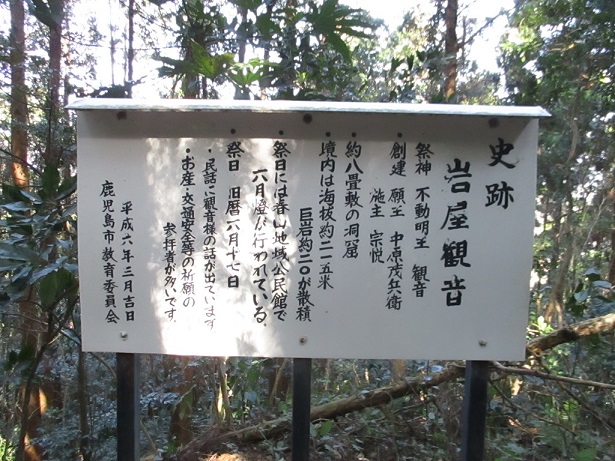 史跡
岩屋観音
祭神 不動明王 観音
・創建 願主 中原茂兵衛
施主 宗悦
・約八畳敷の洞窟
・境内は海抜約二一五米
巨岩約二〇が散積
・祭日には春山地域公民館で
六月燈が行われている。
祭日 旧暦六月十七日
・民話に観音様の話が出ています
・お産・交通安全等の祈願の
参拝者が多いです。
平成六年三月吉日
鹿児島市教育委員会